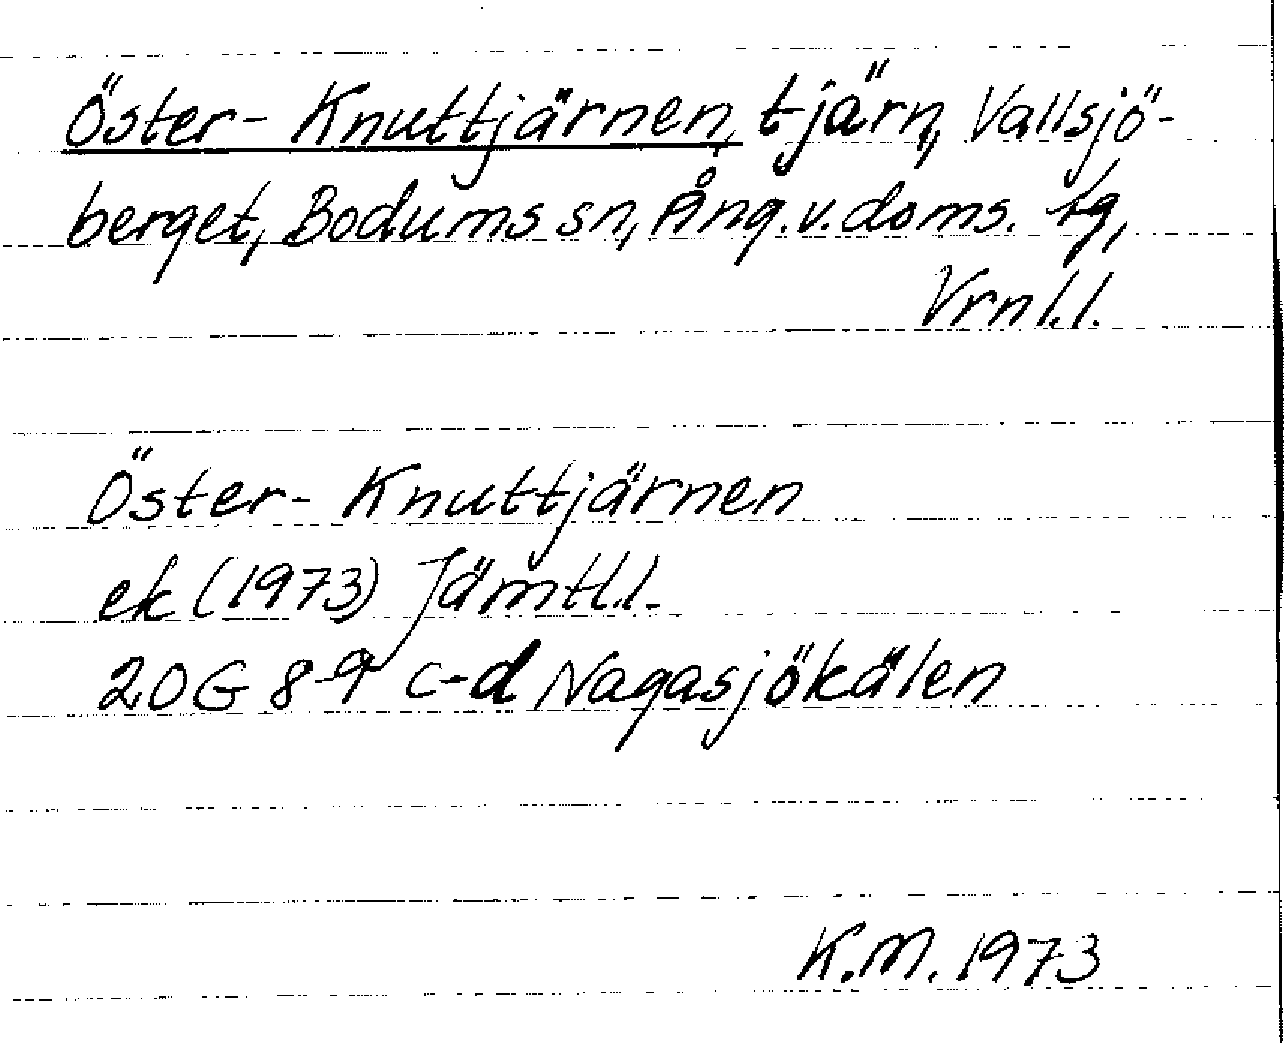 Öster-Knuttjärnen, tjärn, Vallsjö-
berget, Bodums sn, Ång. v. doms. tg,
Vrnl.l.
Öster-Knuttjärnen
ek (1973) Jämtl.l.
20G 8-9 c-d Nagasjökälen
K.M. 1973